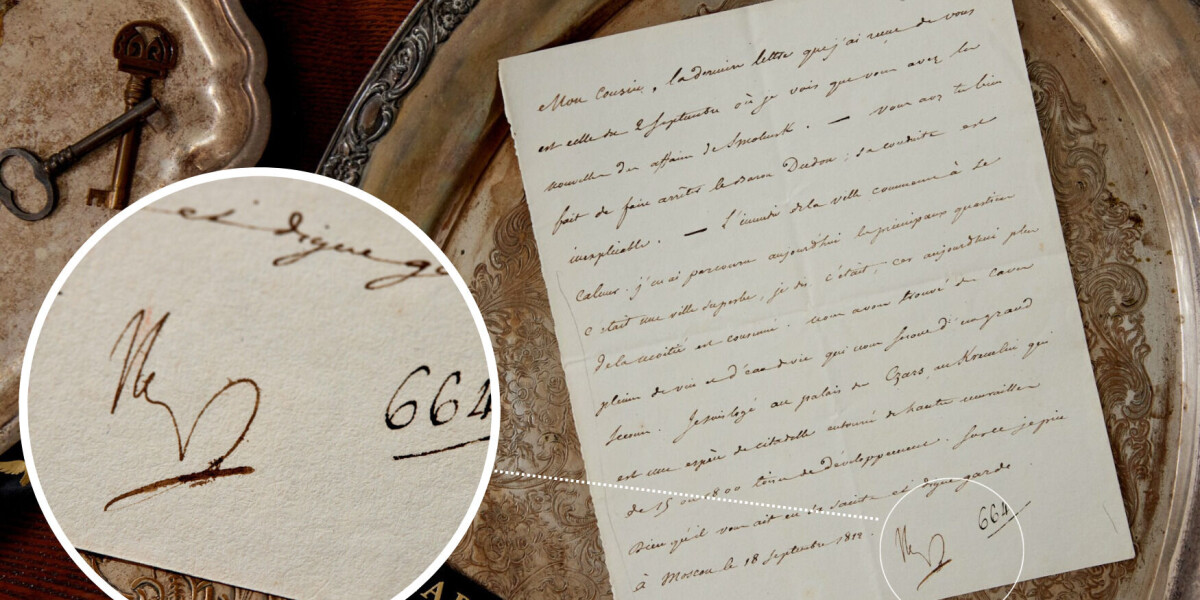 Mon cousin, la dernière lettre que j'ai reçue de vous
est celle du 2 septembre où je vois que vous avez la
nouvelle des affaires de Smolensk. — Vous avez très bien
fait de faire arrêter le Baron Dudon; sa conduite est
inexplicable. — L'incendie de la ville commence à se
calmer. j'en ai parcouru aujourd'hui les principaux quartiers
c'était une ville superbe, je dis c'était, car aujourd'hui plus
de la moitié est consumée. nous avons trouvé des caves
pleines de vin et d'eau de vie qui nous seront d'un grand
secours. Je suis logé au palais des Czars, au Kremlin qui
est une espèce de citadelle entourée de hautes murailles
de 15 ou 1800 toises de développement. Sur ce je prie
Dieu qu'il vous ait en sa sainte et digne garde
à Moscou le 18 septembre 1812.
664
et digne ga
664